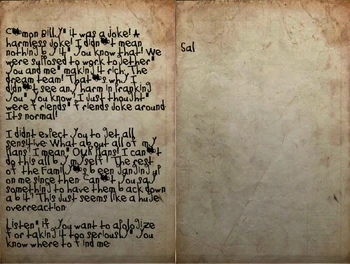 C mon Billy" it was a joke! A
harmless joke! I didn t mean
nothing by it" you know that! We
were supposed to work together"
you and me" making it rich" The
dream team! That s why I
didn t see any harm in pranking
you" you know" I just thought
we re friends" friends joke around
Its normal!
I didnt expect you to get all
sensitive What about all of my
plans" I mean" OUR plans! I can t
do this all by myself" The rest
of the family s been ganging up
on me since then can t you say
something to have them back down
a bit" This just seems like a huge
overreaction
Listen" if you want to apologize
for taking it too seriously" you
know where to find me
Sal